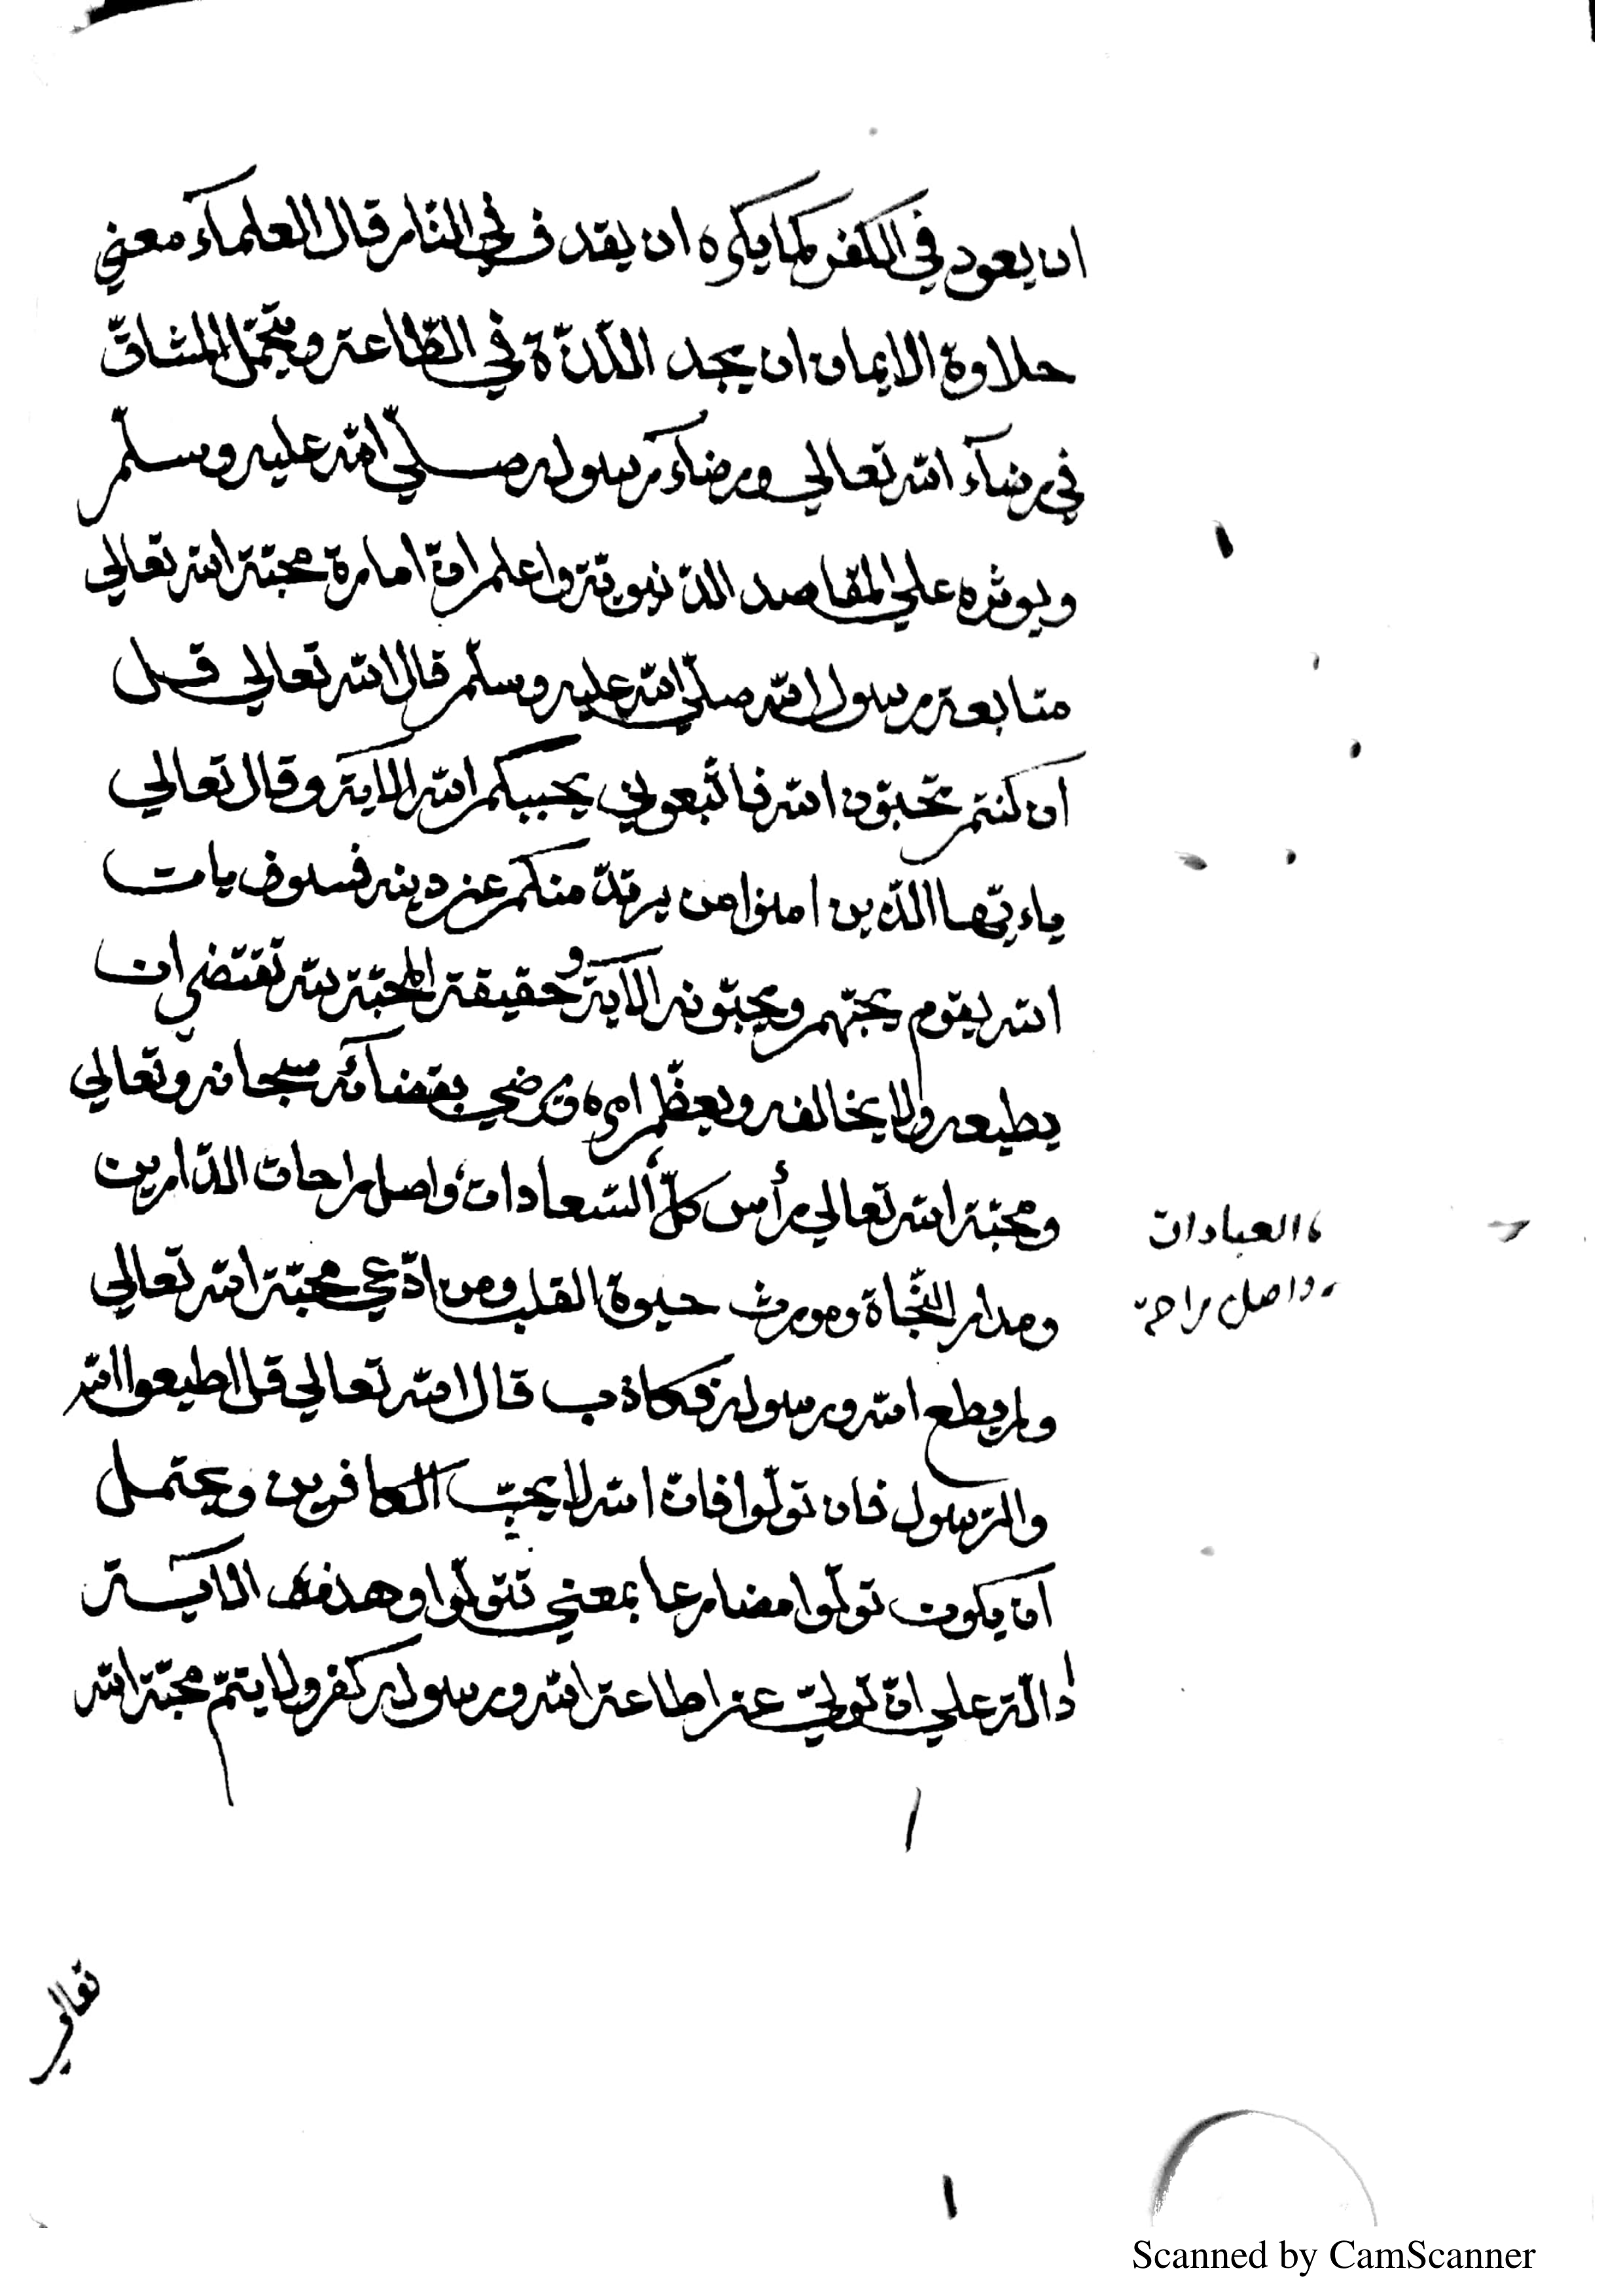 ان يعود في الكفر كما يكره ان يقذف في النّار قال العلمآء معني
حلاوة الايمان ان يجد اللّذّة في الطّاعة ويتحمّل المشاقّ
في رضآء الله تعالي ورضآء رسوله صلّي الله عليه وسلّم
ويوثره علي المقاصد الدّنيويّة واعلم انّ امارة محبّة الله تعالي
متابعة رسول الله صلّي الله عليه وسلّم قال الله تعالي قل
ان كنتم تحبّون الله فاتّبعوني يحببكم الله الاية وقال تعالي
ياءيّها الّذين امنوا من يرتدّ منكم عن دينه فسوف يات
الله بقوم يحبّهم ويحبّونه الاية وحقيقة المحبّة لله تقتضي ان
يطيعه ولا يخالفه ويعظّم امره ويرضي بقضآئه سبحانه وتعالي
ومحبّة الله تعالي رأس كلّ السّعادات واصل راحات الدّارين
ومدار النّجاة ومورث حيوة القلب ومن ادّعي محبّة الله تعالي
ولم يطع الله ورسوله فكاذب قال الله تعالي قل اطيعوا الله
والرّسول فان تولّوا فانّ الله لا يحبّ الكافرين ويحتمل
ان يكون تولّوا مضارعا بمعني تتولّوا وهذه الاية
دالّة علي انّ تولّي عن اطاعة الله ورسوله كفر ولا يتمّ محبّة الله
العبادات
واصل راحة
تعالي
Scanned by CamScanner